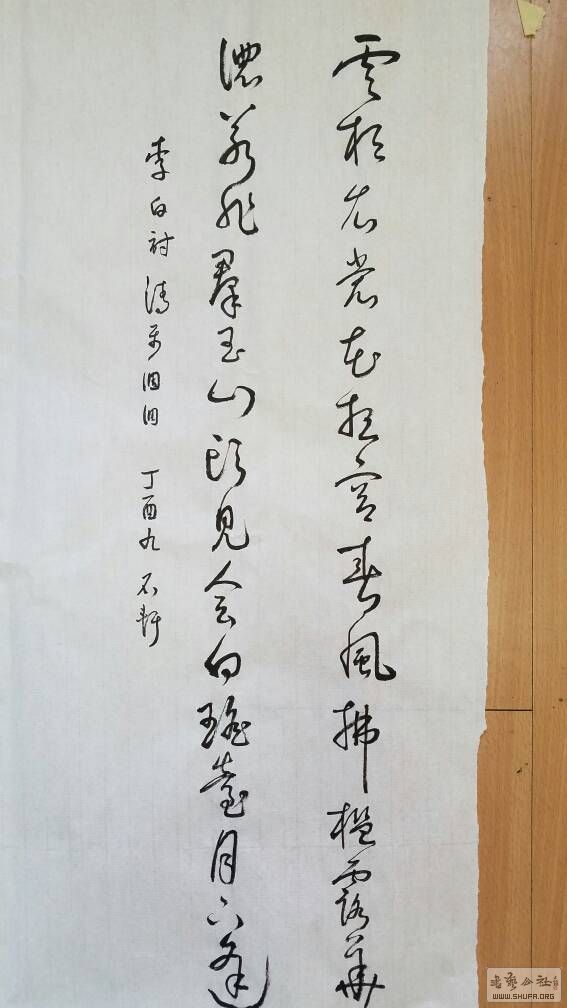 雲想衣裳花想容春風拂檻露華
濃若非羣玉山頭見會向瑤臺月下逢
李白詩清平调词 丁酉九 石軒
書藝公社
WWW.SHUFA.ORG